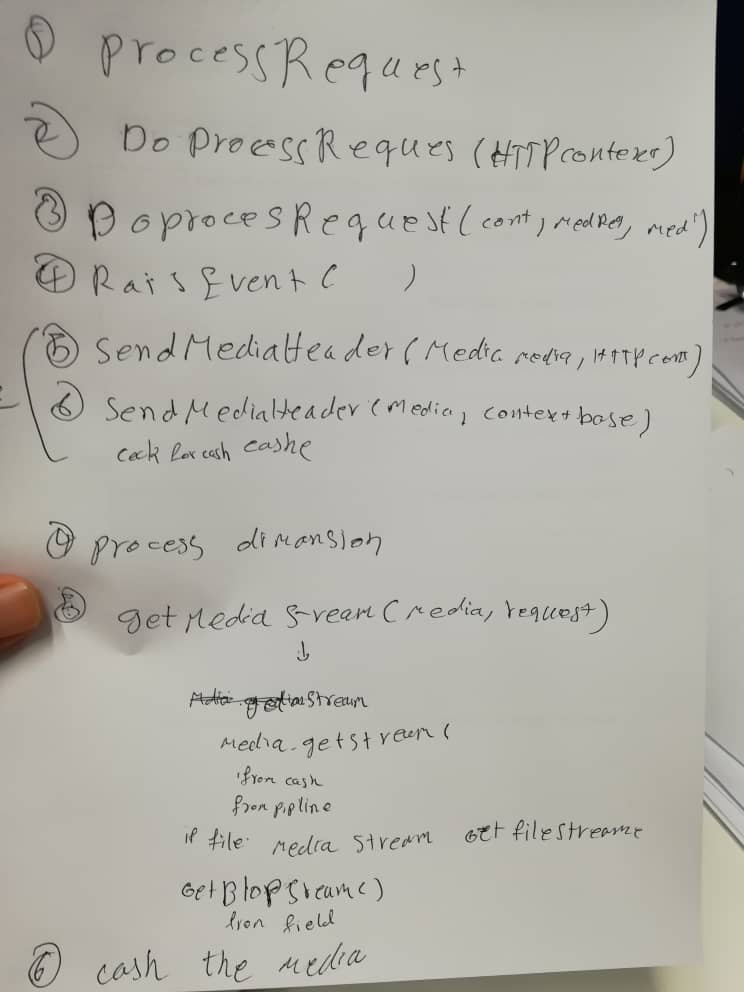 ① processRequest
② DoprocessReques (HTTPcontext)
③ DoprocesRequest(cont, MedReq, med')
④ RaisEvent( )
⑤ SendMediaHeader(Media media, HTTPcont)
⑥ SendMediaHeader(Media, context base)
Ceck for cash cashe
process dimansion
⑧ getMedia Stream (media, request)
↓
Media.getstream(
from cash
from pipline
if file: media stream Get filestreame
GetBlopStream()
from field
⑥ cash the media